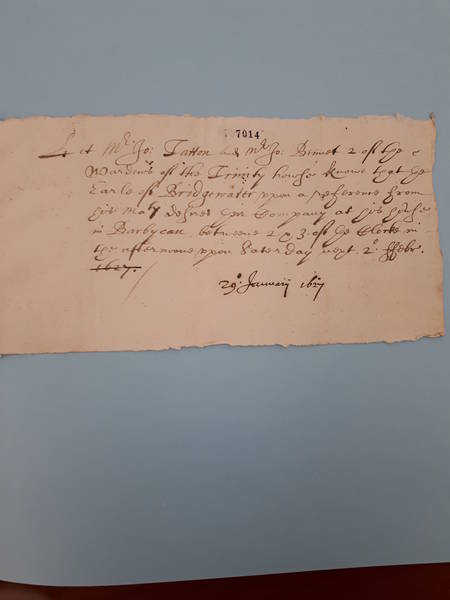 7014
Let Mr Jo: Tatton and Mr Jo: Bennet 2 of the
Wardens of the Trinity house know that the
Earle of Bridgewater upon a reference from
his Maty desires their Company at his house
in Barbycan betweene 2 & 3 of the Clocke in
the afternoone upon Saterday next 2o ffebr.
1627.
29o. January 1627